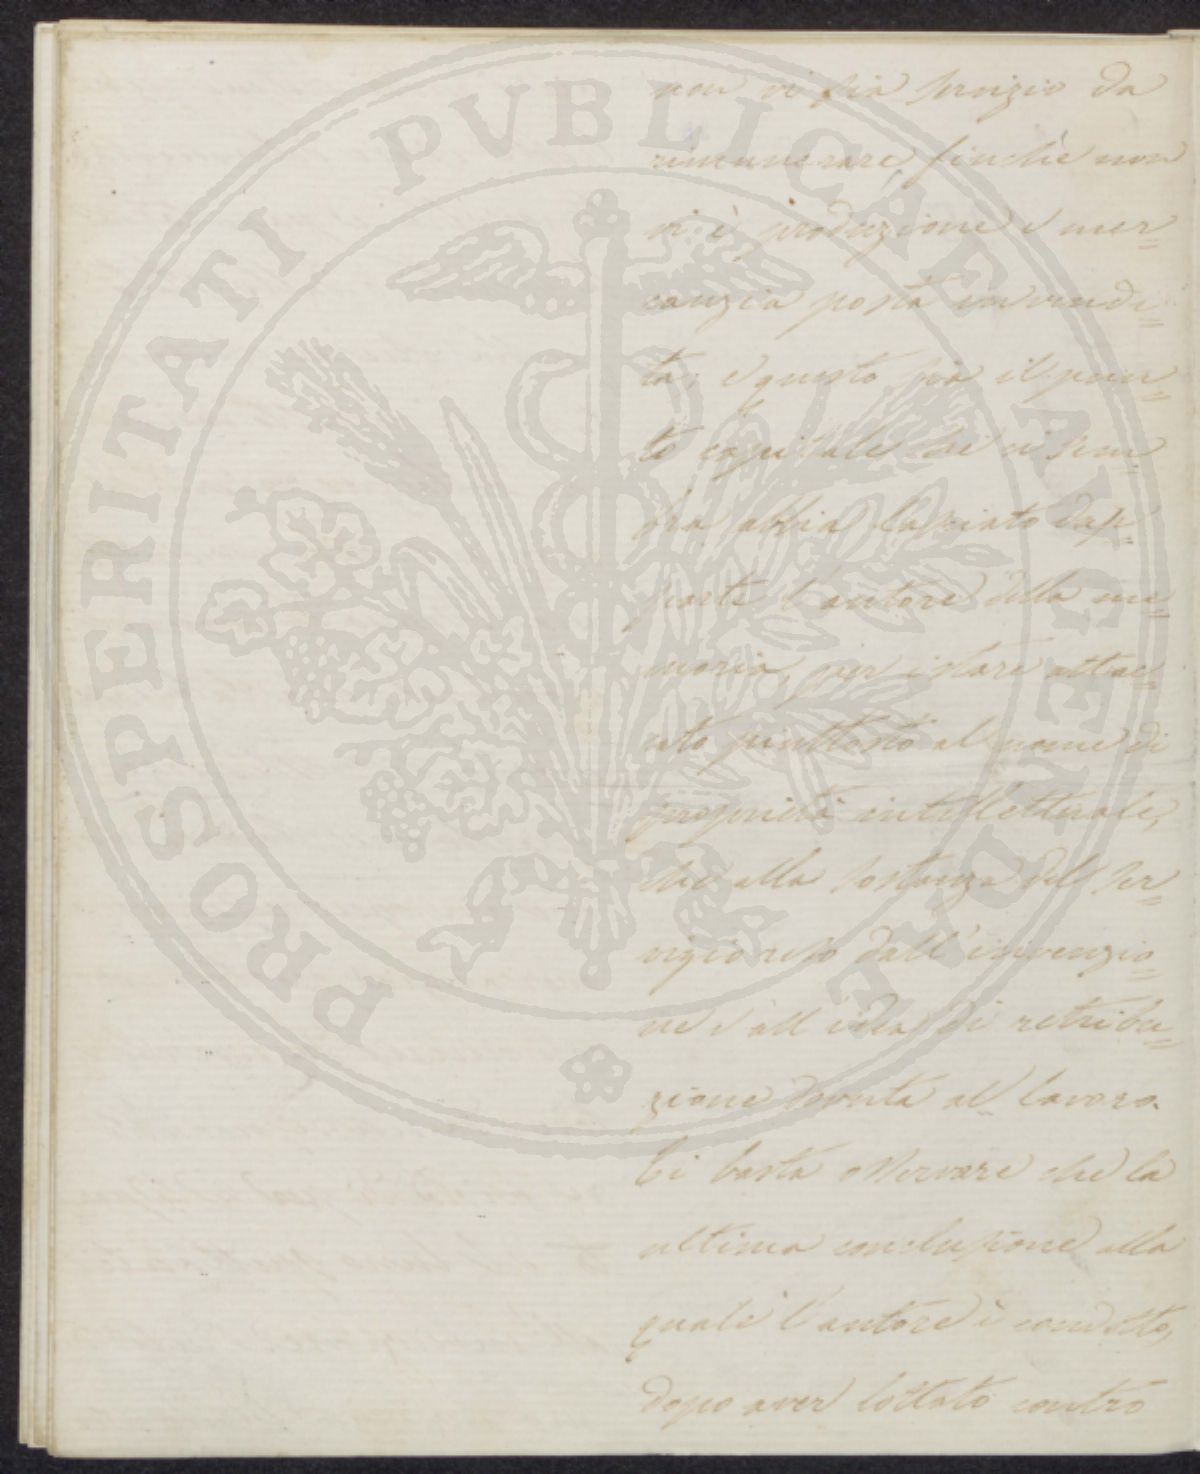 PROSPERITATI PUBLICAE AUGENDAE
non vi sia servizio da
rimunerare, finchè non
vi è produzione e mer=
canzia posta in vendi=
ta; e questo sia il pun=
to capitale che ci sem=
bra abbia lasciato dap=
parte l'autore della me=
moria, per istare attac=
cato piuttosto al nome di
proprietà intellettuale,
che alla sostanza del ser=
vigio reso dall'invenzio=
ne e all'idea di retribu=
zione dovuta al lavoro.
Ci basta osservare che la
ultima conclusione alla
quale l'autore è condotto,
dopo aver lottato contro